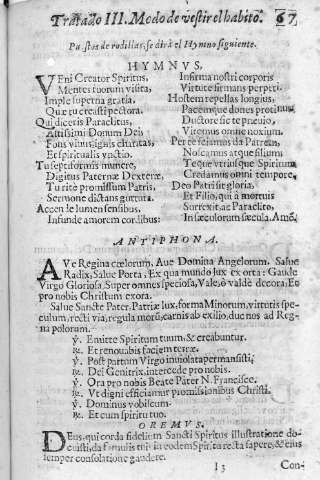 Tratado III. Modo de vestir el habito. 67
Puestos de rodillas, se dirà el Hymno siguiente.
HYMNVS.
VEni Creator Spiritus,
Mentes tuorum visita,
Imple superna gratia,
Quæ tu creasti pectora.
Qui diceris Paraclitus,
Altissimi Donum Dei,
Fons viuus, ignis, charitas,
Et spiritualis vnctio.
Tu septiformis munere,
Digitus Paternæ Dexteræ,
Tu ritè promissum Patris,
Sermone ditans guttura.
Accende lumen sensibus,
Infunde amorem cordibus:
Infirma nostri corporis
Virtute firmans perpeti.
Hostem repellas longius,
Pacemque dones protinus,
Ductore sic te præuio,
Vitemus omne noxium.
Per te sciamus da Patrem,
Noscamus atque filium,
Teque vtriusque Spiritum
Credamus omni tempore.
Deo Patri sit gloria,
Et Filio, qui à mortuis
Surrexit, ac Paraclito,
In sæculorum sæcula. Amẽ.
ANTIPHONA.
AVe Regina cælorum, Aue Domina Angelorum. Salue
Radix, Salue Porta, Ex qua mundo lux ex orta: Gaude
Virgo Gloriosa, Super omnes speciosa, Vale, ò valdè decora, Et
pro nobis Christum exora.
Salue Sancte Pater, Patriæ lux, forma Minorum, virtutis spe-
culum, recti via, regula morũ, carnis ab exilio, duc nos ad Reg-
na polorum.
℣. Emitte Spiritum tuum, & creabuntur.
℟. Et renouabis faciem terræ.
℣. Post partum Virgo inuiolata permansisti,
℟. Dei Genitrix intercede pro nobis.
℣. Ora pro nobis Beate Pater N. Francisce.
℟. Vt digni efficiamur promissionibus Christi.
℣. Dominus vobiscum.
℟. Et cum spiritu tuo.
OREMVS.
DEus, qui corda fidelium Sancti Spiritus illustratione do-
cuisti, da famulis tuis in eodem Spiritu recta sapere, & eius
semper consolatione gaudere.
I 3 Con-